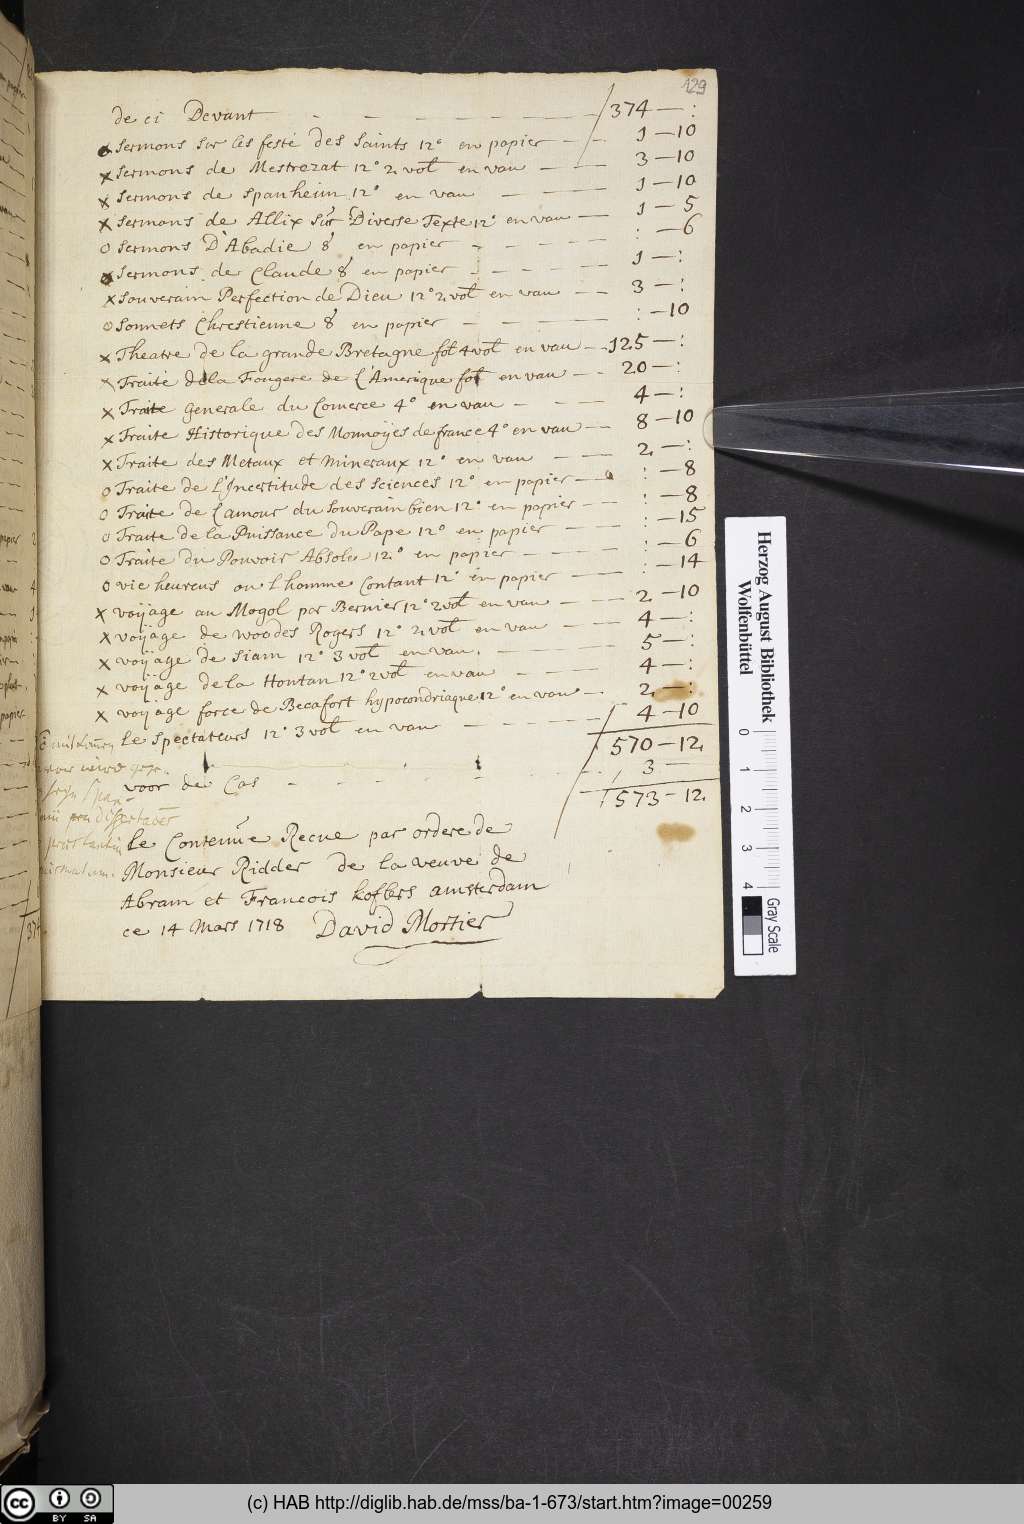 129
de ci Devant — — — — 374 — :
Sermons sur les feste des Saints 12° en papier — — 1 — 10
x Sermons de Mestrezat 12° 2 vol en vau — — 3 — 10
x Sermons de Spanheim 12° en vau — — — 1 — 10
x Sermons de Allix sur Diverse Texte 12° en vau — 1 — 5
o Sermons D'Abadie 8° en papier — — — : — 6
Sermons de Claude 8° en papier — — — 1 — :
x Souverain Perfection de Dieu 12° 2 vol en vau — — 3 — :
o Sonnets Chrestienne 8° en papier — — — : — 10
x Theatre de la grande Bretagne fol 4 vol en vau — 125 — :
x Traité de la Fougere de L'Amerique fol en vau — — 20 — :
x Traite generale du Comerce 4° en vau — — — 4 — :
x Traite Historique des Monnoÿes de france 4° en vau — 8 — 10
x Traite des Metaux et Mineraux 12° en vau — — 2 — :
o Traite de L'Incertitude des Sciences 12° en papier — : — 8
o Traite de L'amour du Souverain bien 12° en papier — : — 8
o Traite de la Puissance du Pape 12° en papier — — : — 15
o Traite du Pouvoir Absolu 12° en papier — — — : — 6
o vie heureus ou L'homme Contant 12° en papier — — : — 14
x voÿage au Mogol par Bernier 12° 2 vol en vau — — 2 — 10
x voÿage de woodes Rogers 12° 2 vol en vau — — 4 — :
x voÿage de Siam 12° 3 vol en vau — — — 5 — :
x voÿage de la Hontan 12° 2 vol en vau — — — 4 — :
x voyage force de Becafort hypocondriaque 12° en vau — 2 — :
Le Spectateurs 12° 3 vol en vau — — — 4 — 10
570 — 12
voor de Cas — — — — 3 —
573 — 12
Le Contenüe Recue par ordere de
Monsieur Ridder de la veuve de
Abram et Francois Hoffers amsterdam
ce 14 Mars 1718 David Mortier
Herzog August Bibliothek
Wolfenbüttel
0 1 2 3 4
Gray Scale
BY SA
(c) HAB http://diglib.hab.de/mss/ba-1-673/start.htm?image=00259